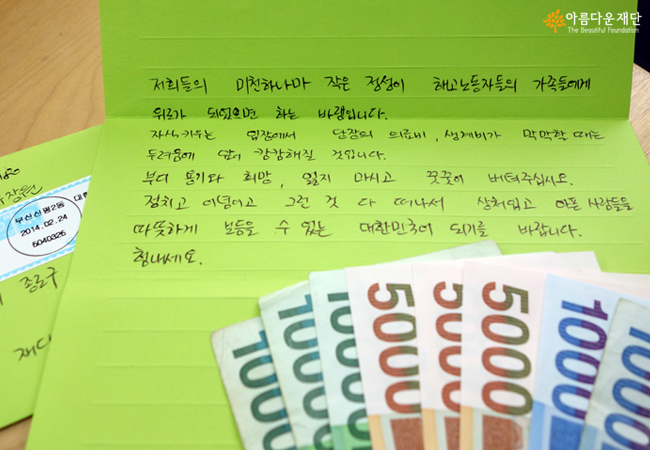 아름다운재단
The Beautiful Foundation
저희들의 미천하나마 작은 정성이 해고노동자들의 가족들에게
위로가 되었으면 하는 바램입니다.
자식키우는 입장에서 당장의 의료비, 생계비가 막막할 때는
두려움에 앞이 캄캄해질 것입니다.
부디 용기와 희망, 잃지 마시고 꿋꿋이 버텨주십시오.
정치고 이념이고 그런 것 다 떠나서 상처입고 아픈 사람들을
따뜻하게 보듬을 수 있는 대한민국이 되기를 바랍니다.
힘내세요.
부산신평2동
2014.02.24
종로구
1000
1000
1000
5000
5000
5000
1000
1000